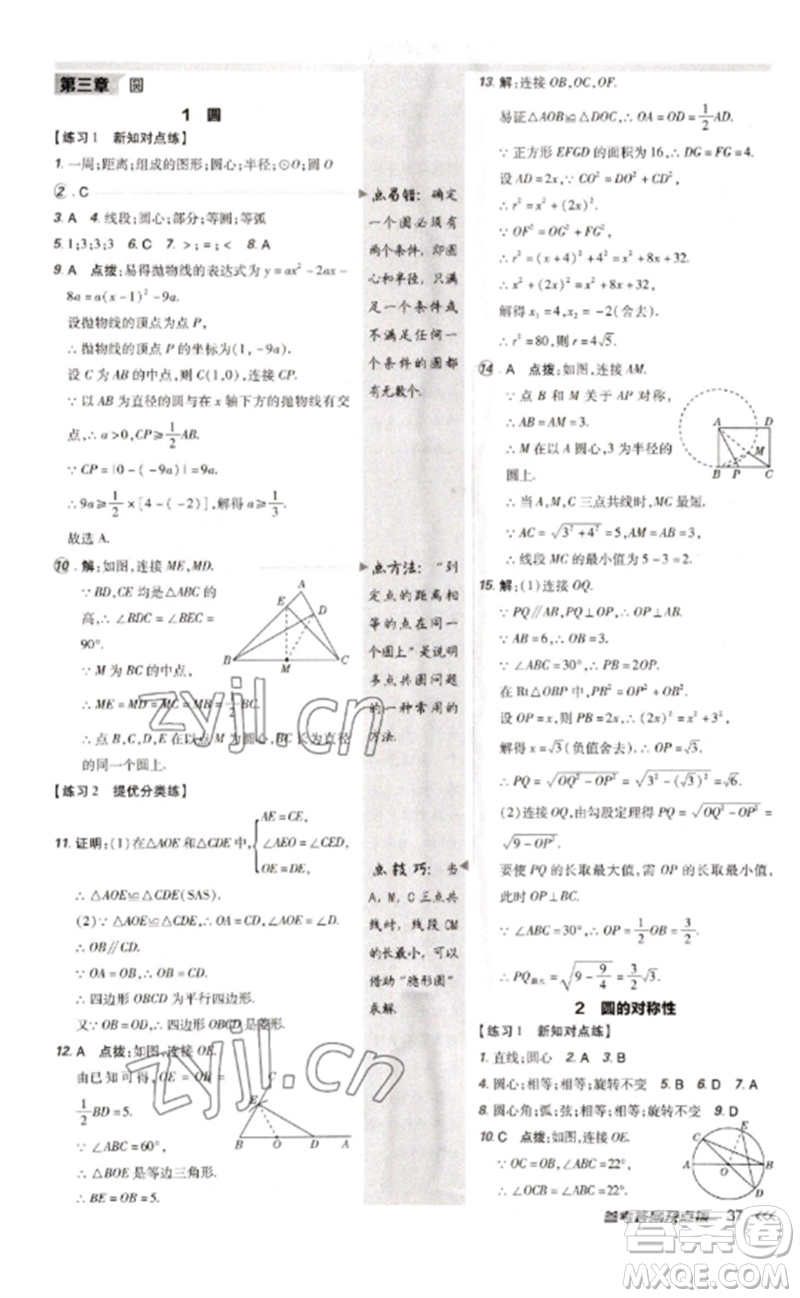 第三章 圆
1 圆
【练习1 新知对点练】
1. 一周;距离;组成的图形;圆心;半径;⊙O;圆 O
2. C
3. A 4. 线段;圆心;部分;等圆;等弧
5. 1;3;3;3 6. C 7. >;=;< 8. A
9. A 点拨:易得抛物线的表达式为 y=ax²-2ax-
8a=a(x-1)²-9a.
设抛物线的顶点为点 P,
∴抛物线的顶点 P 的坐标为(1,-9a).
设 C 为 AB 的中点,则 C(1,0),连接 CP.
∵以 AB 为直径的圆与在 x 轴下方的抛物线有交
点,∴a>0,CP≥1/2AB.
∵CP=|0-(-9a)|=9a,
∴9a≥1/2×[4-(-2)],解得 a≥1/3.
故选 A.
10. 解:如图,连接 ME,MD.
∵BD,CE 分别是△ABC 的
高,∴∠BDC=∠BEC=
90°.
∵M 为 BC 的中点,
∴ME=MD=MC=MB=1/2BC.
∴点 B,C,D,E 在以点 M 为圆心,BC 长为直径的
同一个圆上.
A
E
D
B
M
C
【练习2 提优分类练】
11. 证明:(1)在△AOE 和△CDE 中,{AE=CE,
∠AEO=∠CED,
OE=DE,
∴△AOE≌△CDE(SAS).
(2)∵△AOE≌△CDE,∴OA=CD,∠AOE=∠D.
∴OB∥CD.
∵OA=OB,∴OB=CD.
∴四边形 OBCD 为平行四边形.
又∵OB=OD,∴四边形 OBCD 是菱形.
12. A 点拨:如图,连接 OE.
由已知可得,OE=OB=
1/2BD=5.
∵∠ABC=60°,
∴△BOE 是等边三角形.
∴BE=OB=5.
C
E
B
O
D
A
点易错:确定
一个圆必须有
两个条件,即圆
心和半径,只满
足一个条件或
不满足任何一
个条件的圆都
有无数个.
点方法:“到
定点的距离相
等的点在同一
个圆上”是说明
多点共圆问题
的一种常用的
方法.
点技巧:当
A,M,C三点共
线时,线段CM
的长最小,可以
借助“隐形圆”
求解.
13. 解:连接 OB,OC,OF.
易证△AOB≌△DOC,∴OA=OD=1/2AD.
∵正方形 EFGD 的面积为 16,∴DG=FG=4.
设 AD=2x,∵CO²=CD²+DO²,
∴r²=x²+(2x)².
∵OF²=OG²+FG²,
∴r²=(x+4)²+4².
∴x²+(2x)²=(x+4)²+4².
解得 x₁=4,x₂=-2(舍去).
∴r²=80,则 r=4√5.
14. A 点拨:如图,连接 AM.
∵点 B 和 M 关于 AP 对称,
∴AB=AM=3.
∴M 在以 A 圆心,3 为半径的
圆上.
∴当 A,M,C 三点共线时,CM 最短.
∵AC=√3²+4²=5,AM=AB=3,
∴线段 MC 的最小值为 5-3=2.
A
D
M
B
P
C
15. 解:(1)连接 OQ.
∵PQ∥AB,OP⊥PQ,∴OP⊥AB.
∵AB=6,∴OB=3.
∵∠ABC=30°,∴PB=2OP.
在 Rt△OBP 中,PB²=OP²+OB²,
设 OP=x,则 PB=2x,则(2x)²=x²+3²,
解得 x=√3(负值舍去).∴OP=√3.
∴PQ=√OQ²-OP²=√3²-(√3)²=√6.
(2)连接 OQ,由勾股定理得 PQ=√OQ²-OP²=
√9-OP².
要使 PQ 的长取最大值,需 OP 的长取最小值,
此时 OP⊥BC.
∵∠ABC=30°,∴OP=1/2OB=3/2.
∴PQ最大=√9-9/4=3/2√3.
2 圆的对称性
【练习1 新知对点练】
1. 直线;圆心 2. A 3. B
4. 圆心;相等;相等;旋转不变 5. B 6. D 7. B
8. 圆心角;弧;弦;相等;旋转不变 9. D
10. C 点拨:如图,连接 OE.
∵OC=OB,∠ABC=22°,
∴∠OCB=∠ABC=22°.
E
C
A
O
B
D
参考答案及点拨 37
zyjl.cn
zyjl.cn
答案圈
MXQE.COM